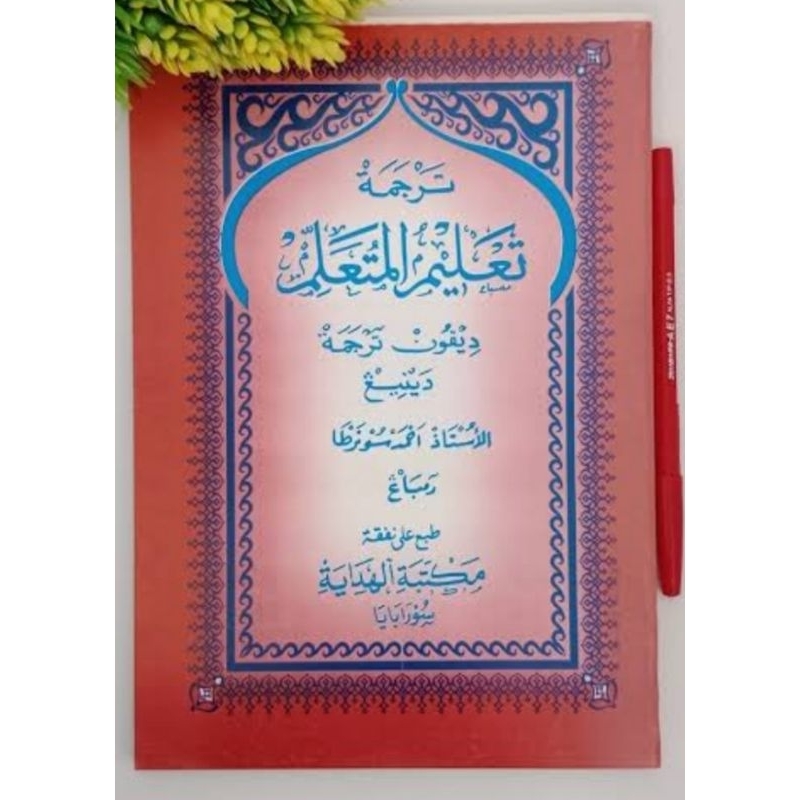 تَرْجَمَةْ
تَعْلِيْمُ الْمُتَعَلِّمْ
دِيْڤُونْ تَرْجَمَةْ
دَيْنِيْڠْ
الأُسْتَاذْ اَحْمَدْ سُونَرْطَا
رَمْبَاڠْ
طبع على نفقة
مَكْتَبَةِ الْهِدَايَةْ
سُوْرَابَايَا